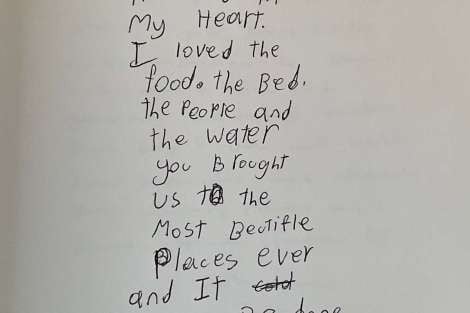 My Heart.
I loved the
food. the Bed.
the People and
the water
you Brought
us to the
Most Beutifle
Places ever
and It